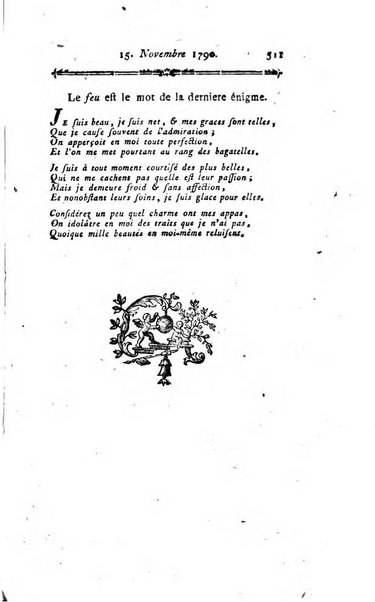 15. Novembre 1790. 511
Le feu est le mot de la derniere énigme.
JE ſuis beau, je ſuis net, & mes graces ſont telles,
Que je cauſe ſouvent de l'admiration;
On apperçoit en moi toute perfection,
Et l'on me met pourtant au rang des bagatelles.
Je ſuis à tout moment courtiſé des plus belles,
Qui ne me cachent pas quelle eſt leur paſſion;
Mais je demeure froid & ſans affection,
Et nonobſtant leurs ſoins, je ſuis glace pour elles.
Conſidérez un peu quel charme ont mes appas,
On idolâtre en moi des traits que je n'ai pas,
Quoique mille beautés en moi-même reluiſent.